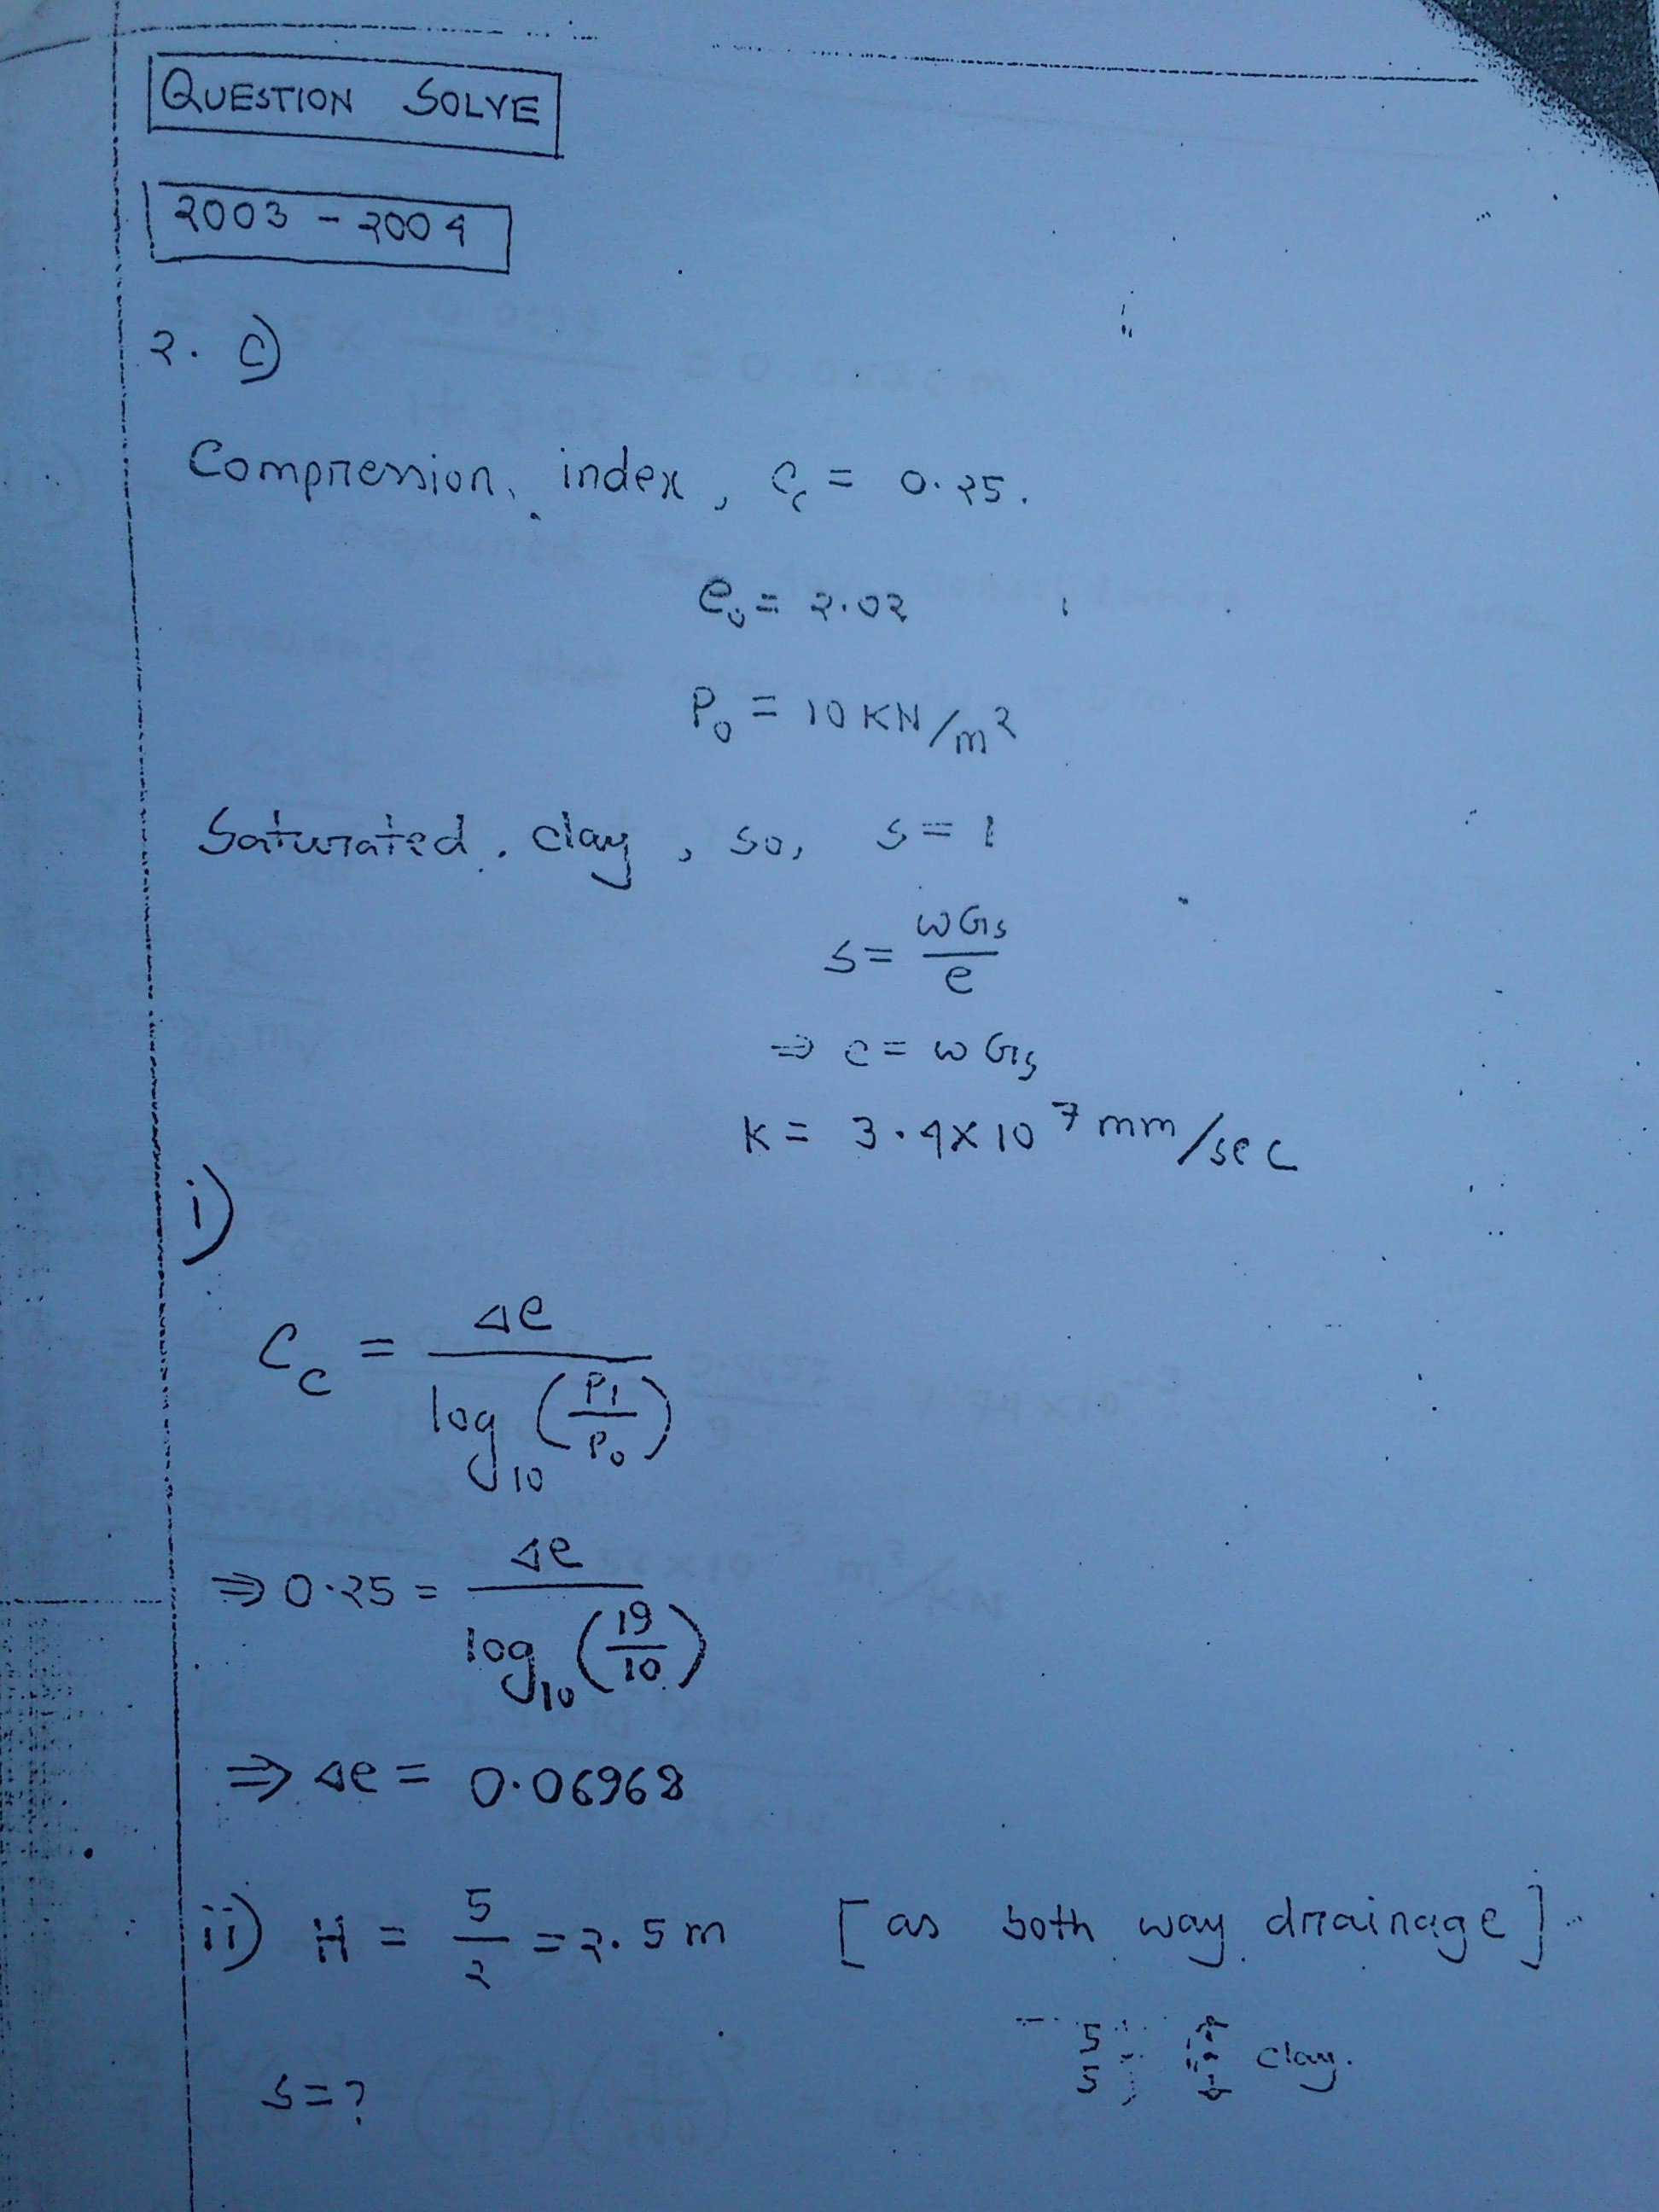 QUESTION SOLVE
2003 - 2004
2. c)
Compression index, Cc = 0.25.
e₀ = 2.02
P₀ = 10 KN/m²
Saturated clay, so, s = 1
s = wGs/e
⇒ e = wGs
K = 3.4×10⁷ mm/sec
i)
Cc = Δe / log₁₀(P₁/P₀)
⇒ 0.25 = Δe / log₁₀(19/10)
⇒ Δe = 0.06968
ii) H = 5/2 = 2.5 m [as both way drainage]
5
5 clay.
s = ?